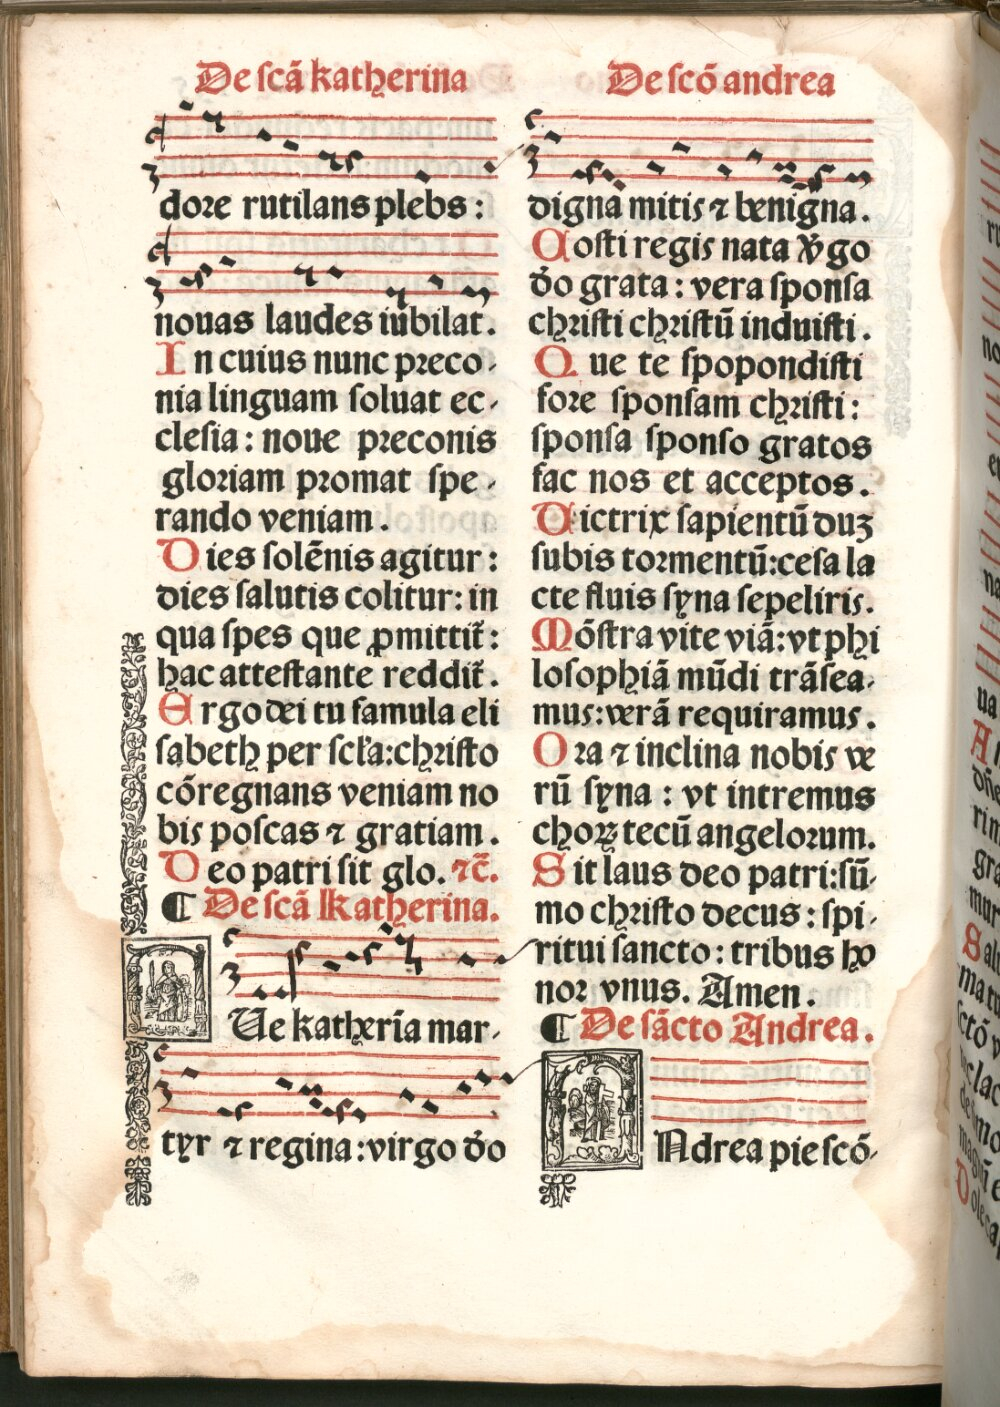 De scã katherina
dore rutilans plebs :
nouas laudes iubilat.
In cuius nunc preco-
nia linguam soluat ec-
clesia : noue preconis
gloriam promat spe-
rando veniam .
Dies solẽnis agitur :
dies salutis colitur : in
qua spes que ꝓmittit̃ :
hac attestante reddit̃ .
Ergo dei tu famula eli
sabeth per scl'a:christo
cõregnans veniam no
bis poscas ⁊ gratiam .
Deo patri sit glo. ⁊c̃.
¶ De scã Katherina.
AUe katherĩa mar-
tyr ⁊ regina:virgo d̃o
De scõ andrea
digna mitis ⁊ benigna .
Costi regis nata v̓go
d̃o grata : vera sponsa
christi christũ induisti .
Que te spopondisti
fore sponsam christi :
sponsa sponso gratos
fac nos et acceptos .
Uictrix sapientũ duʒ
subis tormentũ:cesa la
cte fluis syna sepeliris.
Mõstra vite viã:vt phi
losophiã mũdi trãsea-
mus:verã requiramus .
Ora ⁊ inclina nobis ve
rũ syna : vt intremus
choꝝ tecũ angelorum.
Sit laus deo patri:sũ-
mo christo decus : spi-
ritui sancto : tribus ho
nor vnus. Amen .
¶ De sãcto Andrea .
ANdrea pie scõ-